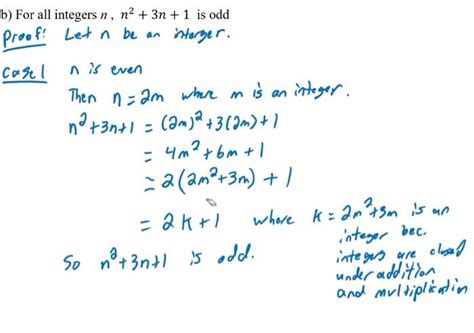 b) For all integers n, n² + 3n + 1 is odd
Proof: Let n be an integer.
Case 1 n is even
Then n = 2m where m is an integer.
n²+3n+1 = (2m)²+3(2m)+1
= 4m²+6m+1
= 2(2m²+3m)+1
= 2k+1 where k = 2m²+3m is an
integer bec.
integers are closed
under addition
and multiplication
So n²+3n+1 is odd.